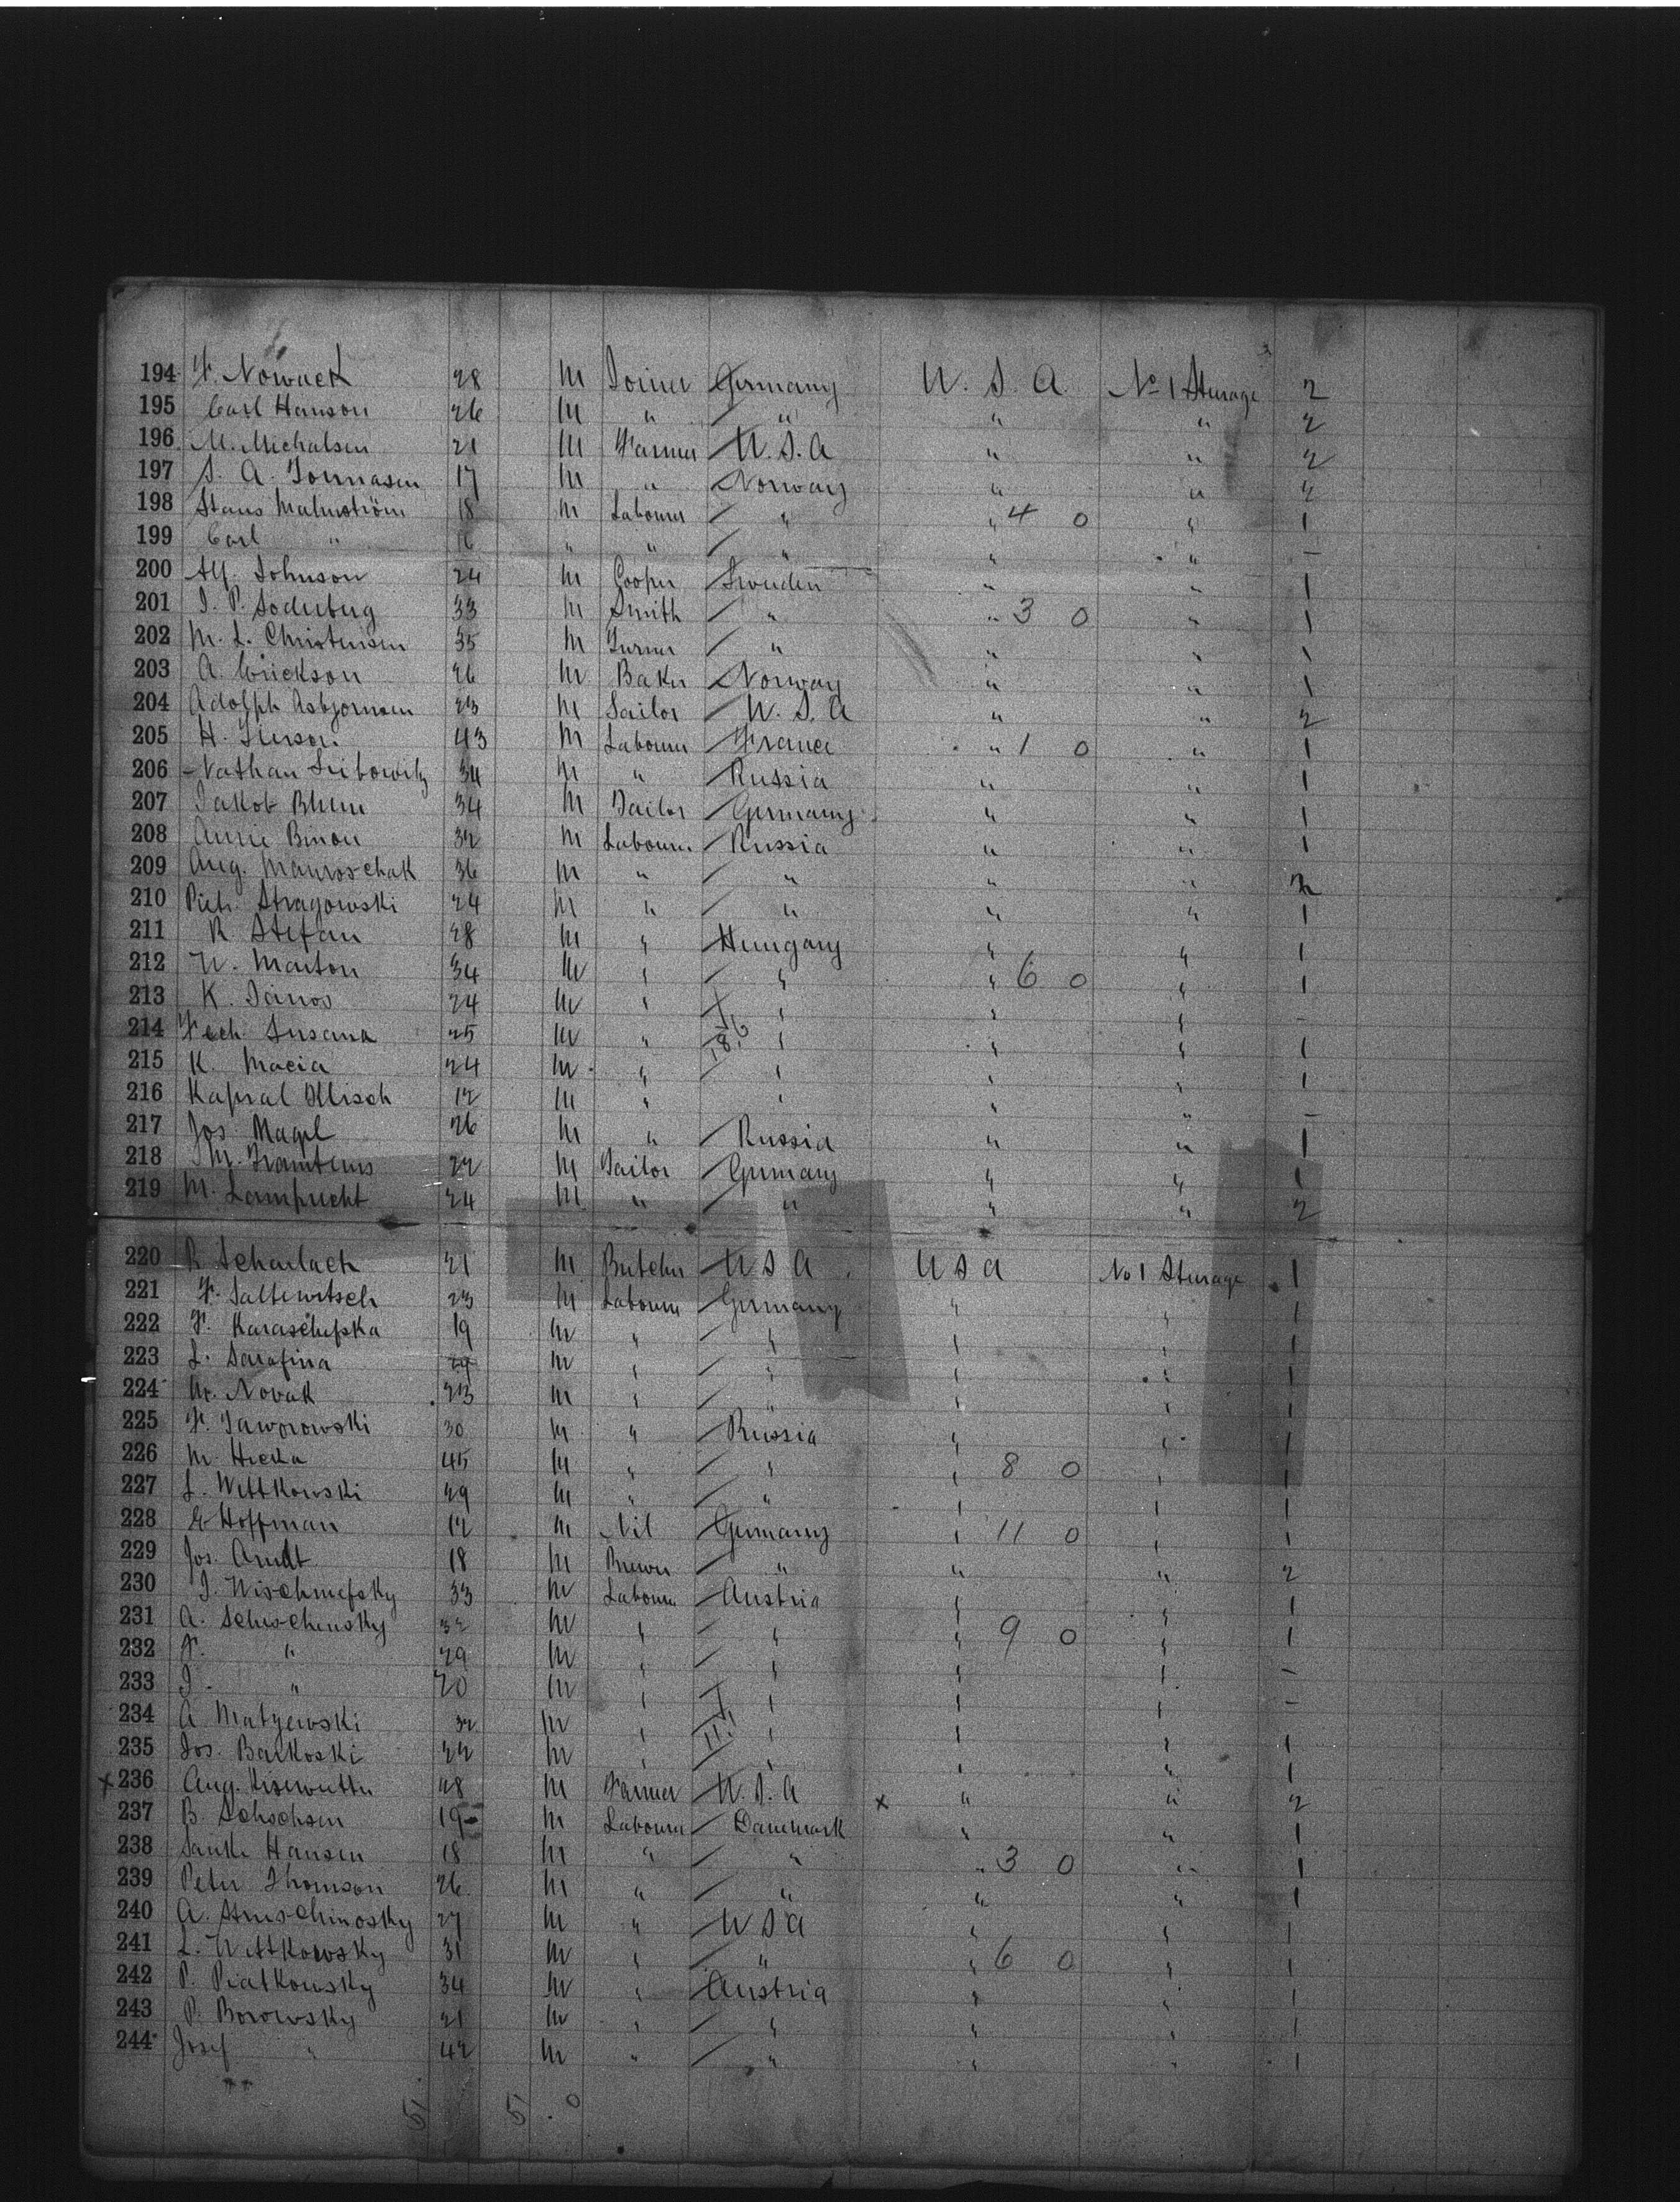 194 F. Nowack 28 M Joiner Germany U. S. A No 1 Sturage 2
195 Carl Hanson 26 M " " " " 2
196 M. Michalsen 21 M Farmer U. S. A " " 2
197 S. A. 17 M " Norway " " 2
198 Malmström 18 M Labourer " " 4 0 " 1
199 Carl " 16 " " " " " –
200 Alf. Johnson 24 M Cooper Sweden " " 1
201 J. P. Soderberg 33 M Smith " " 3 0 " 1
202 M. L. Christensen 35 M Turner " " " 1
203 A. Erickson 26 M Baker Norway " " 1
204 Adolph Asbjornsen 23 M Sailor U. S. A " " 2
205 H. 43 M Labourer France " 1 0 " 1
206 Nathan Leibowitz 34 M " Russia " " 1
207 Jakob Blum 34 M Tailor Germany " " 1
208 Annie Binon 32 M Labourer Russia " " 1
209 Aug. Mauroschak 36 M " " " " 2
210 Piet. Stragowski 24 M " " " " 1
211 R Stefan 28 M " Hungary " " 1
212 W. Marton 34 M " " " 6 0 " 1
213 K. Janos 24 M " " " " –
214 Fech Susana 25 M " " " " 1
215 K. Maria 24 M " " " " 1
216 Kapral 12 M " " " " –
217 Jos Magel 26 M " Russia " " 1
218 M. 22 M Tailor Germany " " 1
219 M. Lamprecht 24 M " " " " 2
220 R Scharlach 21 M Butcher U S A U S A No 1 Sturage 1
221 F. Saltewitsch 23 M Labourer Germany " " 1
222 F. 19 M " " " " 1
223 L. Sarafina 29 M " " " " 1
224 M. Novak 23 M " " " " 1
225 F. Jaworowski 30 M " Russia " " 1
226 M. 45 M " " " 8 0 " 1
227 L. Wittkowski 29 M " " " " 1
228 E Hoffman 12 M Nil Germany " 11 0 " 1
229 Jos. Arndt 18 M Brewer " " " 2
230 J. 33 M Labourer Austria " " 1
231 A. Schischensky 32 M " " " 9 0 " 1
232 F. " 29 M " " " " –
233 J. " 20 M " " " " –
234 A Matzewski 32 M " " " " 1
235 Jos. Barkoski 22 M " " " " 1
x 236 Aug. 28 M Farmer U. S. A x " " 2
237 B. 19 M Labourer Danemark " " 1
238 Hansen 18 M " " " 3 0 " 1
239 Peter Thomson 26 M " " " " 1
240 A. 27 M " U S A " " 1
241 L. Wittkowsky 31 M " " " 6 0 " 1
242 P. Piatkowsky 34 M " Austria " " 1
243 P. Borowsky 21 M " " " " 1
244 Josef " 42 M " " " " 1
5 5 . 0